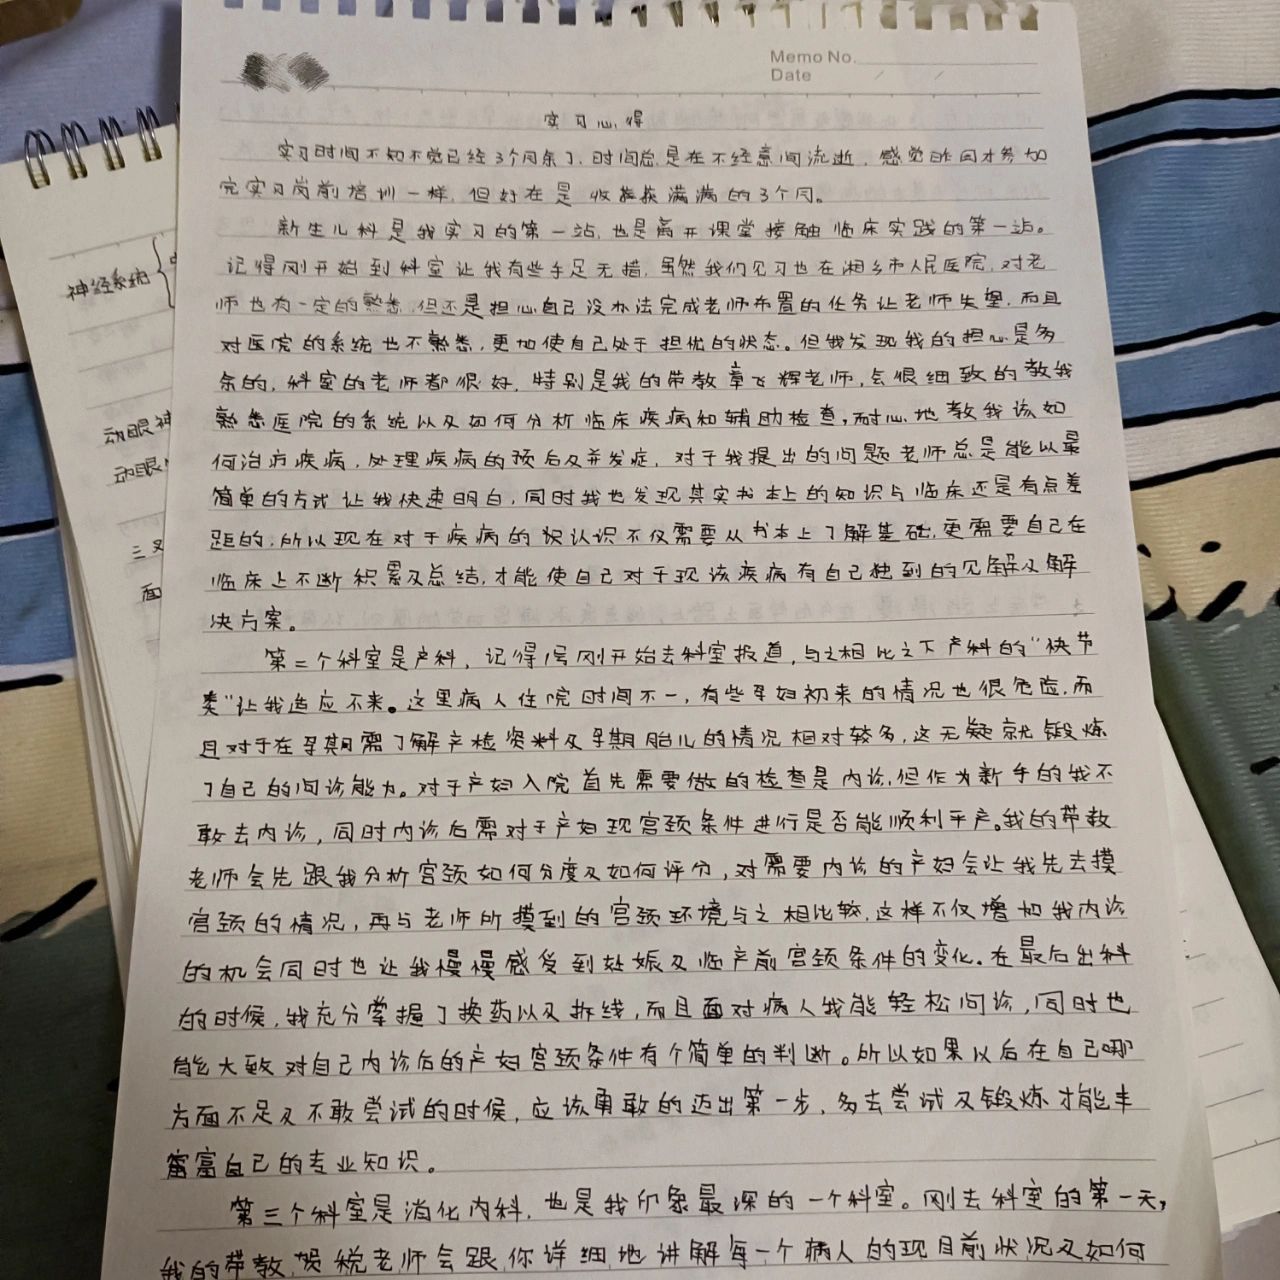 Memo No.
Date
实习心得
实习时间不知不觉已经3个月余了,时间总是在不经意间流逝,感觉昨日才参加
完实习岗前培训一样,但好在是收获满满的3个月。
新生儿科是我实习的第一站,也是离开课堂接触临床实践的第一站。
记得刚开始到科室让我有些手足无措,虽然我们见习也在湘乡市人民医院,对老
师也有一定的熟悉,但还是担心自己没办法完成老师布置的任务让老师失望,而且
对医院的系统也不熟悉,更加使自己处于担忧的状态。但我发现我的担心是多
余的,科室的老师都很好,特别是我的带教章飞辉老师,会很细致的教我
熟悉医院的系统以及如何分析临床疾病和辅助检查,耐心地教我该如
何治疗疾病,处理疾病的预后及并发症,对于我提出的问题老师总是能以最
简单的方式让我快速明白,同时我也发现其实书本上的知识与临床还是有点差
距的,所以现在对于疾病的认识不仅需要从书本上了解基础,更需要自己在
临床上不断积累及总结,才能使自己对于现该疾病有自己独到的见解及解
决方案。
第二个科室是产科,记得1号刚开始去科室报道,与之相比之下产科的"快节
奏"让我适应不来。这里病人住院时间不一,有些孕妇初来的情况也很危险,而
且对于在孕期需了解产检资料及孕期胎儿的情况相对较多,这无疑就锻炼
了自己的问诊能力。对于产妇入院首先需要做的检查是内诊,但作为新手的我不
敢去内诊,同时内诊后需对于产妇现宫颈条件进行是否能顺利平产。我的带教
老师会先跟我分析宫颈如何分度及如何评分,对需要内诊的产妇会让我先去摸
宫颈的情况,再与老师所摸到的宫颈环境与之相比较,这样不仅增加我内诊
的机会同时也让我慢慢感受到妊娠及临产前宫颈条件的变化。在最后出科
的时候,我充分掌握了换药以及拆线,而且面对病人我能轻松问诊,同时也
能大致对自己内诊后的产妇宫颈条件有个简单的判断。所以如果以后在自己哪
方面不足及不敢尝试的时候,应该勇敢的迈出第一步,多去尝试及锻炼才能丰
富自己的专业知识。
第三个科室是消化内科,也是我印象最深的一个科室。刚去科室的第一天,
我的带教贺税老师会跟你详细地讲解每一个病人的现目前状况及如何
神经系统
动眼神
动眼
三叉
面